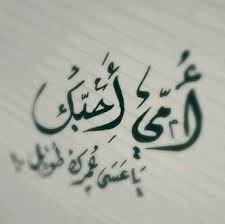 أُمّي أُحبّك
يَا عَسَى عُمرك طويل